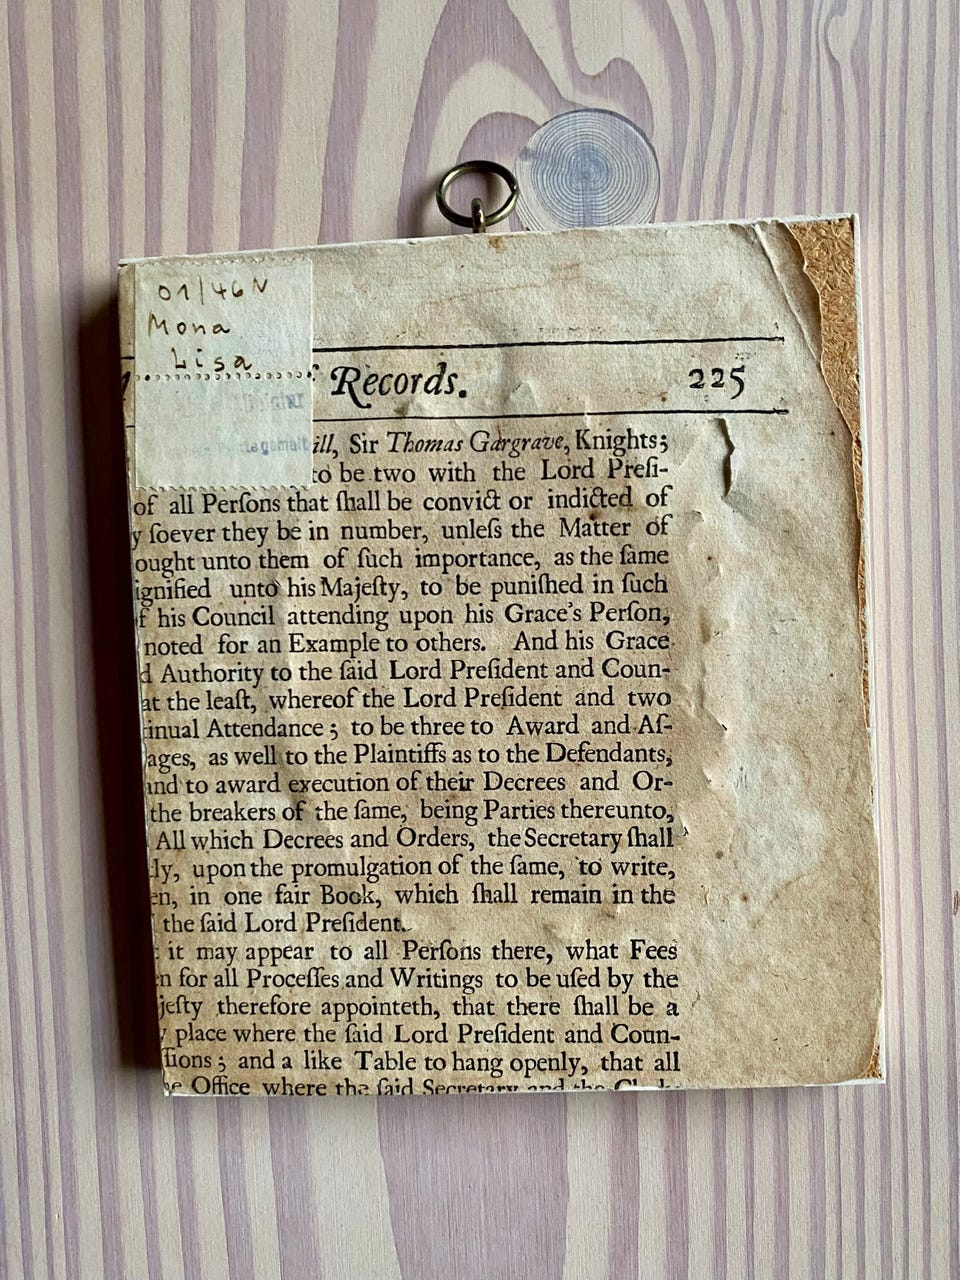 01/46N
Mona
Lisa
Records. 225
ill, Sir Thomas Gargrave, Knights;
to be two with the Lord Preſi-
of all Perſons that ſhall be convict or indicted of
y ſoever they be in number, unleſs the Matter of
ought unto them of ſuch importance, as the ſame
ignified unto his Majeſty, to be puniſhed in ſuch
f his Council attending upon his Grace's Perſon,
noted for an Example to others. And his Grace
d Authority to the ſaid Lord Preſident and Coun-
at the leaſt, whereof the Lord Preſident and two
inual Attendance; to be three to Award and Aſ-
ages, as well to the Plaintiffs as to the Defendants,
ind to award execution of their Decrees and Or-
the breakers of the ſame, being Parties thereunto,
All which Decrees and Orders, the Secretary ſhall
ly, upon the promulgation of the ſame, to write,
en, in one fair Book, which ſhall remain in the
the ſaid Lord Preſident.
it may appear to all Perſons there, what Fees
n for all Proceſſes and Writings to be uſed by the
jeſty therefore appointeth, that there ſhall be a
place where the ſaid Lord Preſident and Coun-
ſions; and a like Table to hang openly, that all
e Office where the ſaid Secretary and the